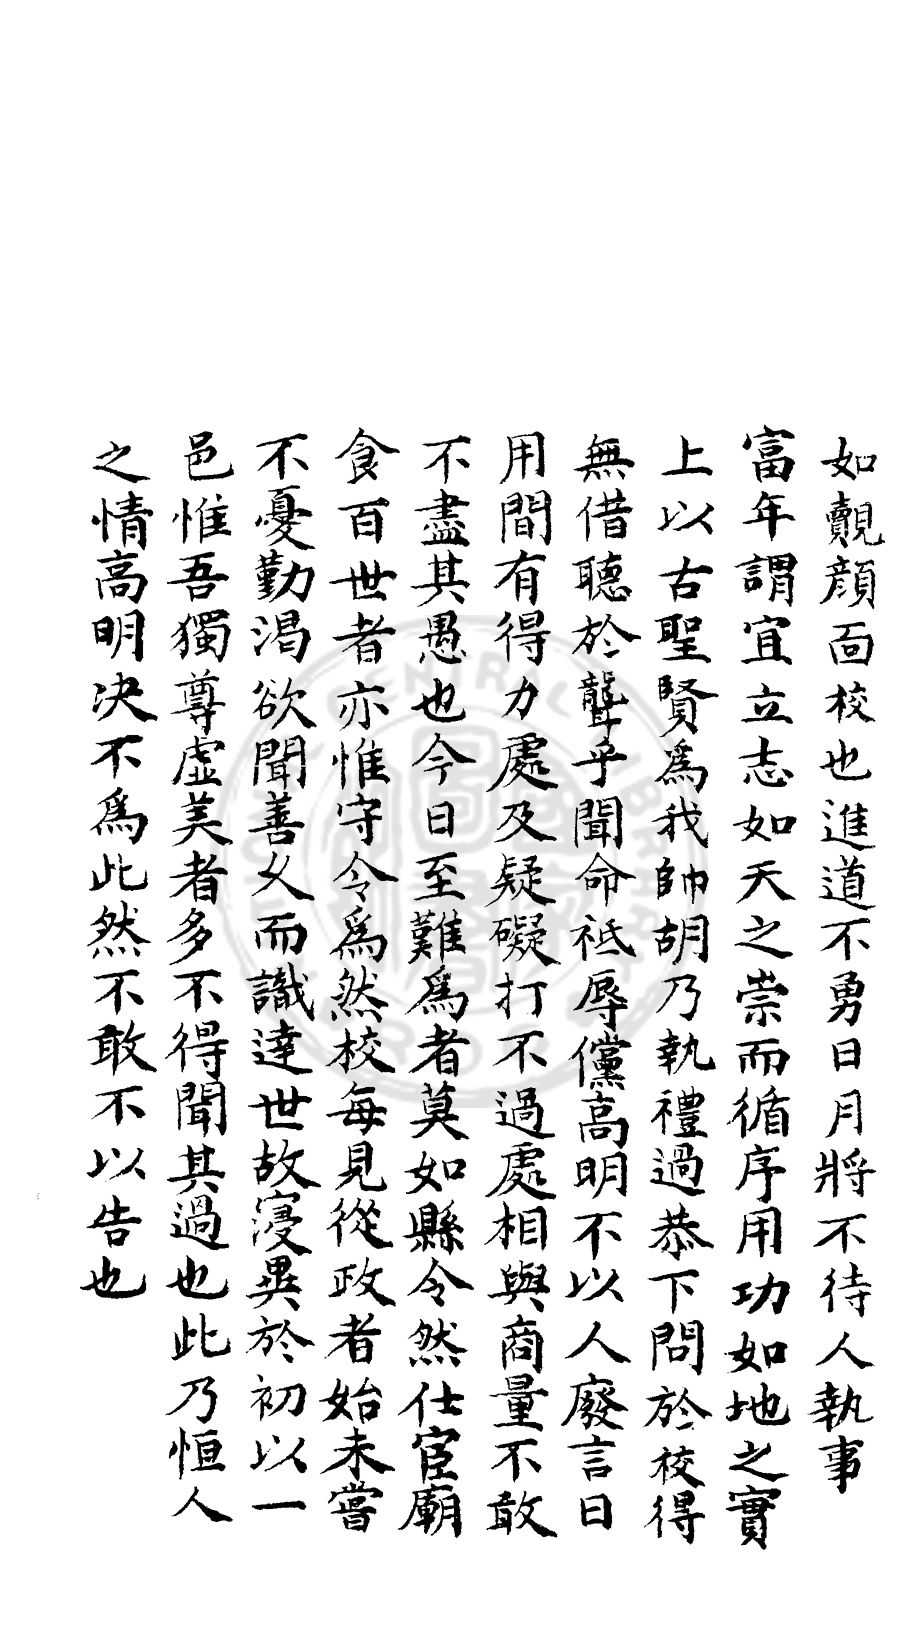 如覿顔面校也進道不勇日月將不待人執事
富年謂宜立志如天之崇而循序用功如地之實
上以古聖賢爲我帥胡乃執禮過恭下問於校得
無借聽於聾乎聞命祗辱儻高明不以人廢言日
用間有得力處及疑礙打不過處相與商量不敢
不盡其愚也今日至難爲者莫如縣令然仕宦廟
食百世者亦惟守令爲然校每見從政者始未嘗
不憂勤渴欲聞善乆而識達世故寖異於初以一
邑惟吾獨尊虛美者多不得聞其過也此乃恒人
之情高明决不爲此然不敢不以告也
CENTRAL